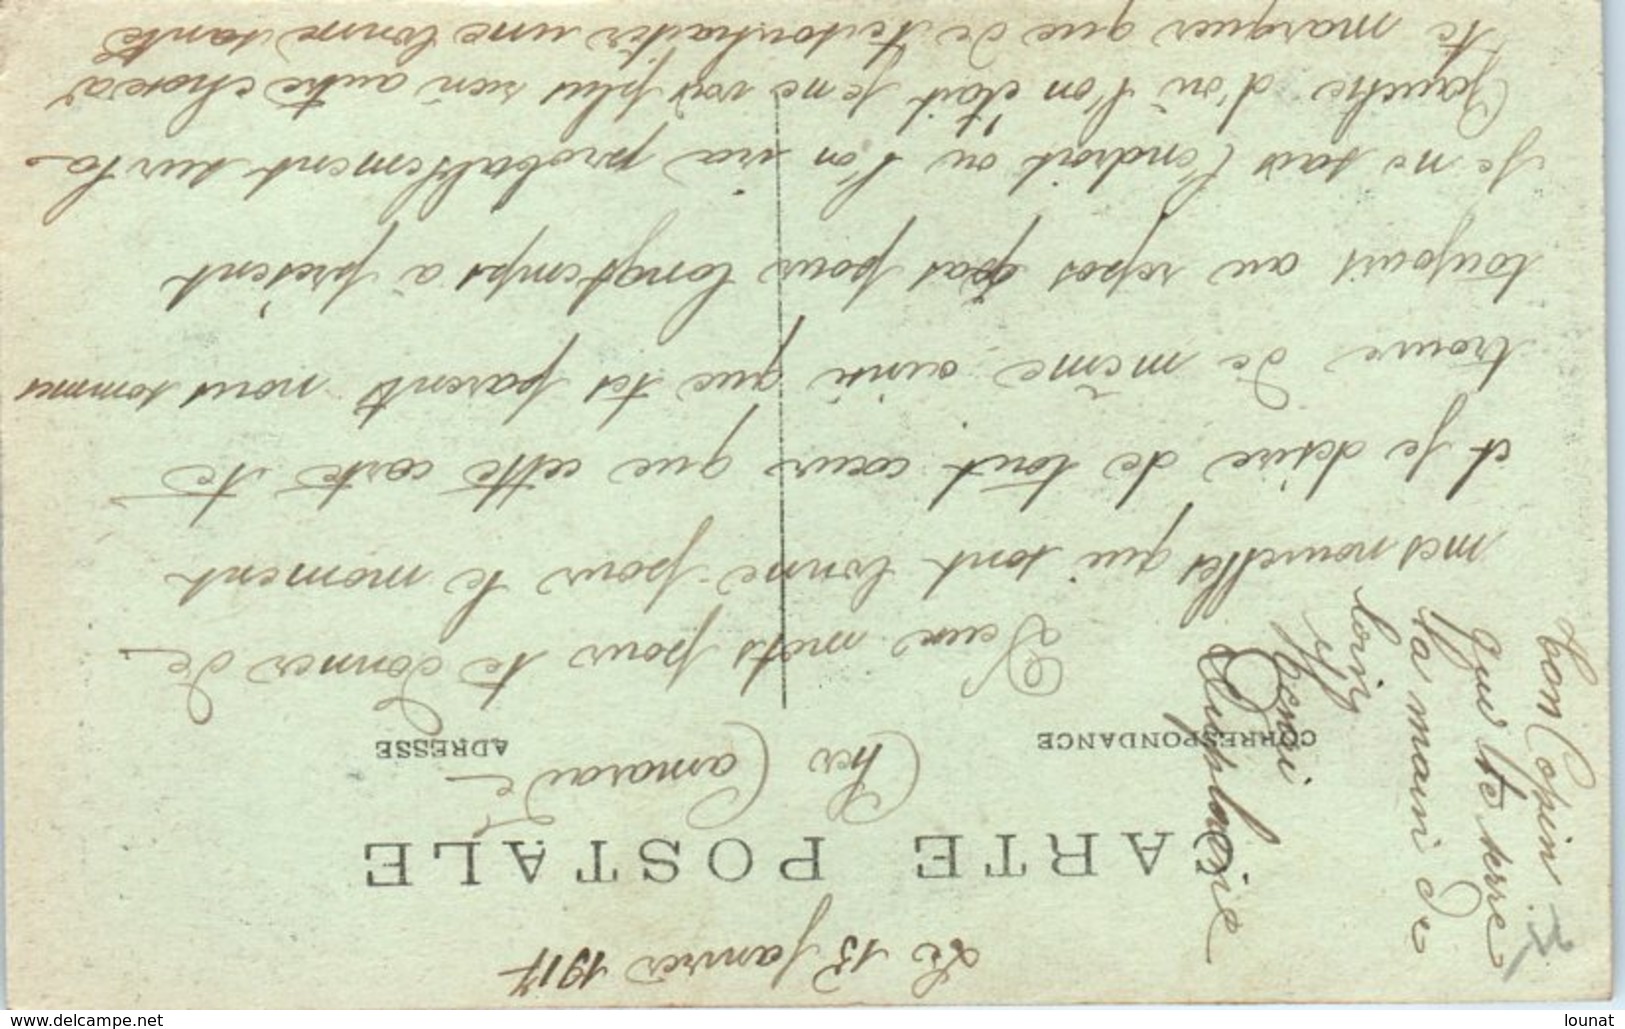 Le 13 Janvier 1917
CARTE POSTALE
Cher Camarade
CORRESPONDANCE
ADRESSE
Deux mots pour te donner de
mes nouvelles qui sont bonne pour le moment
et je désire de tout cœur que cette carte te
trouve de même ainsi que tes parents nous sommes
toujours au repos pas pour longtemps à présent
Je ne sais l'endroit ou l'on ira probablement sur la
Gauche d'où l'on était Je ne vois plus rien autre chose à
te marquer que de te souhaiter une bonne santé
ton Copin
qui te serre
la main de
loin
Henri
www.delcampe.net
lounat